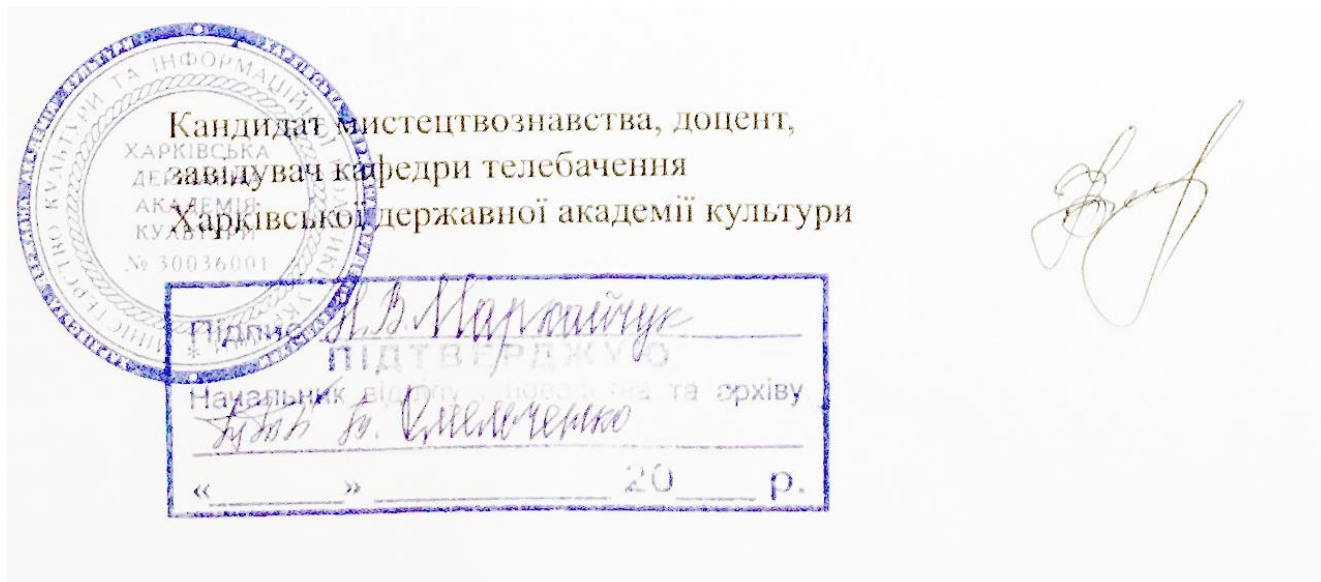 МІНІСТЕРСТВО КУЛЬТУРИ ТА ІНФОРМАЦІЙНОЇ ПОЛІТИКИ УКРАЇНИ *
ХАРКІВСЬКА
ДЕРЖАВНА
АКАДЕМІЯ
КУЛЬТУРИ
№ 30036001
Кандидат мистецтвознавства, доцент,
завідувач кафедри телебачення
Харківської державної академії культури
Підпис Н.В. Мархайчук
ПІДТВЕРДЖУЮ
Начальник відділу діловодства та архіву
Омельченко
«______» ____________ 20____ р.